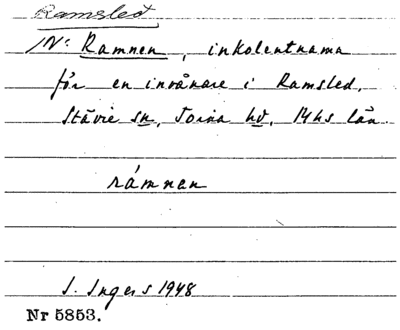 Ramsled
N: Ramnen, inkolentnamn
för en invånare i Ramsled,
Stävie sn, Torna hd, Mhs län.
rámnen
I. Ingers 1948
Nr 5853.